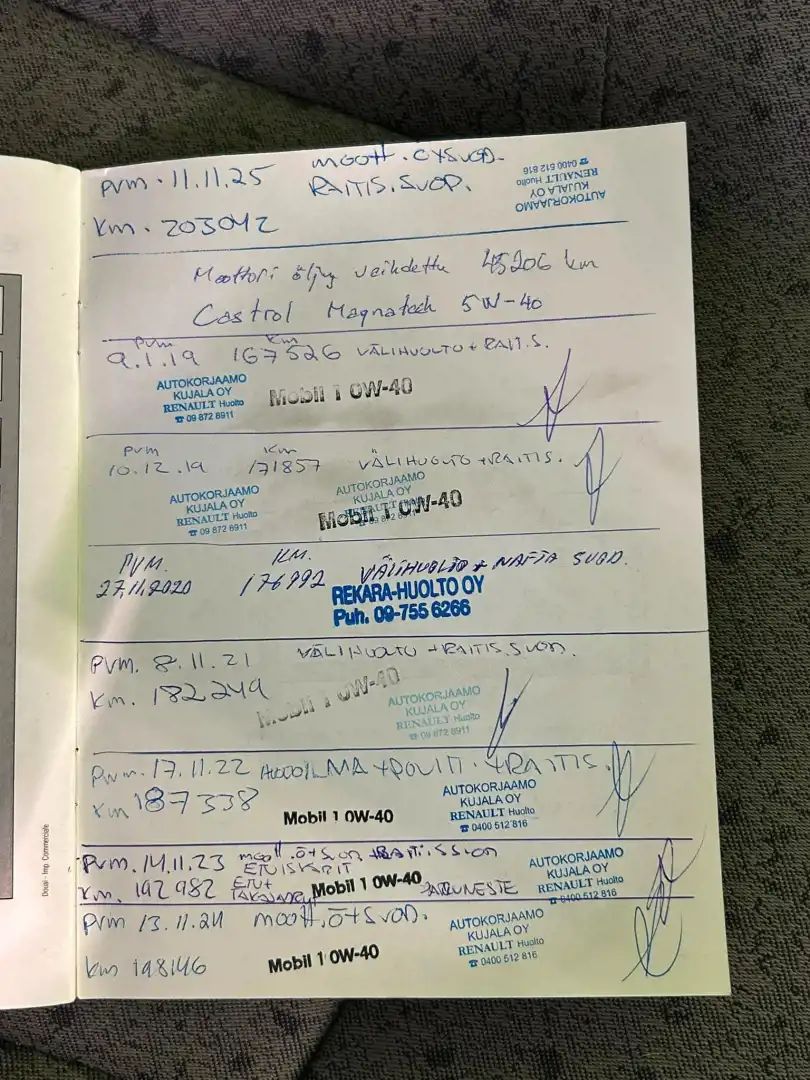 pvm. 11.11.25 MOOTT. Ö+SUOD.
RAITIS. SUOD.
Km. 203042
AUTOKORJAAMO
KUJALA OY
RENAULT Huolto
☎ 0400 512 816
Moottori öljy vaihdettu 45206 km
Castrol Magnatech 5W-40
PVM KM
9.1.19 167526 VÄLIHUOLTO + RAITIS.
AUTOKORJAAMO
KUJALA OY
RENAULT Huolto
☎ 09 872 8911
Mobil 1 0W-40
PVM KM
10.12.19 171857 VÄLIHUOLTO + RAITIS.
AUTOKORJAAMO
KUJALA OY
RENAULT Huolto
☎ 09 872 8911
AUTOKORJAAMO
KUJALA OY
Mobil 1 0W-40
PVM. KM.
27.11.2020 176992 VÄLIHUOLTO + NAFTA SUOD.
REKARA-HUOLTO OY
Puh. 09-755 6266
PVM. 8.11.21 VÄLIHUOLTO + RAITIS.SUOD.
Km. 182249
Mobil 1 0W-40
AUTOKORJAAMO
KUJALA OY
RENAULT Huolto
☎ 09 872 8911
Pvm. 17.11.22 + RAITIS.
Km 187338
Mobil 1 0W-40
AUTOKORJAAMO
KUJALA OY
RENAULT Huolto
☎ 0400 512 816
Pvm. 14.11.23 moott. ö+suod + RAITISSUOD
ETUISKARIT
Km. 192982 ETU+
Mobil 1 0W-40
JARRUNESTE
AUTOKORJAAMO
KUJALA OY
RENAULT Huolto
☎ 0400 512 816
Pvm 13.11.24 moott. ö+suod.
km 198146
Mobil 1 0W-40
AUTOKORJAAMO
KUJALA OY
RENAULT Huolto
☎ 0400 512 816
Douai - Imp. Commerciale